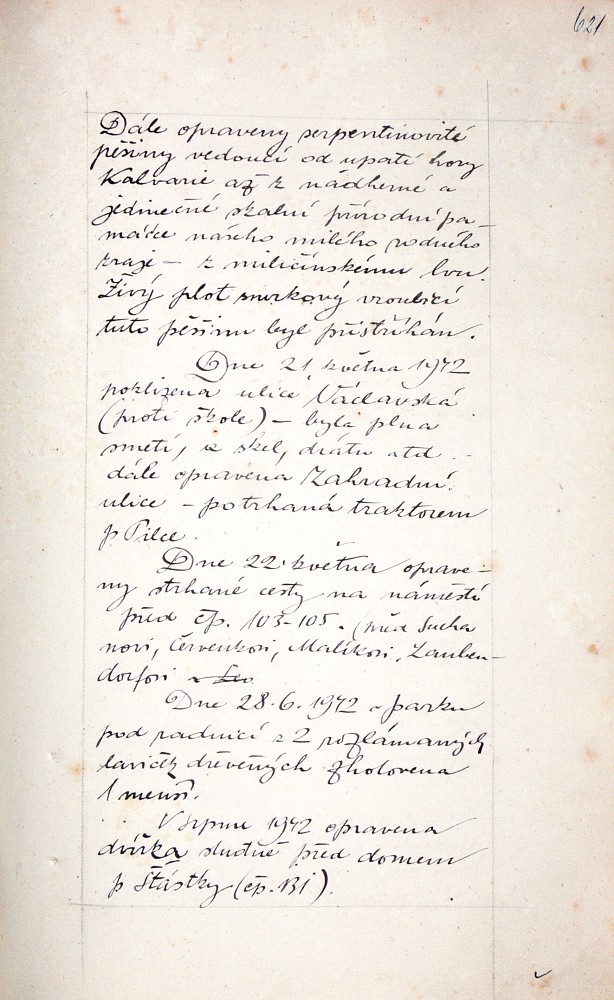 621
Dále opraveny serpentinovité
pěšiny vedoucí od upatí hory
Kalvarie až k nádherné a
jedinečné skalní přírodní pa-
mátce našeho milého rodného
kraje – k miličínskému lvu.
Živý plot smrkový vroubící
tuto pěšinu byl přistříhán.
Dne 21. května 1972
poklizena ulice Václavská
(proti škole) – byla plna
smetí, skel, drátu atd.
dále opravena Zahradní
ulice – potrhaná traktorem
p Pilce.
Dne 22. května oprave-
ny strhané cesty na náměstí
před čp. 103-105. (před Sucha
novi, Červenkovi, Malíkovi, Zauben-
dorfovi
Dne 28.6. 1972 v parku
pod radnicí z 2 rozlámaných
laviček dřevěných zhotovena
1 menší.
V srpnu 1972 opravena
dvířka studně před domem
p Šťástky (čp. 131).